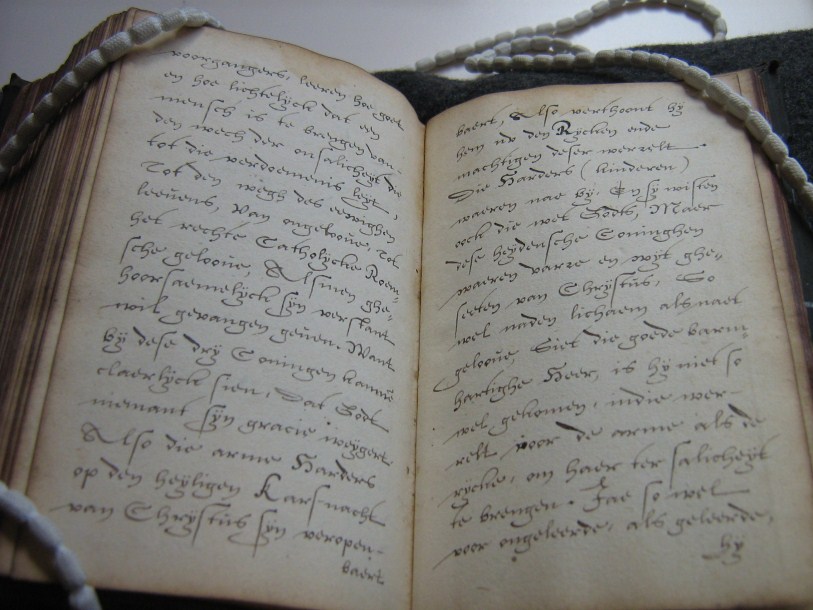 voorgangers, leeren hoe goet
en hoe lichtelyck dat een
mensch is te brengen van
den wech der onsalicheyt die
tot die verdoemenis leyt,
Tot den wegh des eewighen
leeuens, Van ongelooue, tot
het rechte Catholycke Room-
sche gelooue, Alsmen ghe-
hoorsaemelyck syn verstant
wil gevangen geuen. Want
by dese dry Coningen kanme
claerlyck sien, Dat Godt
niemant syn gracie weygert
Also die arme Harders
op den heyligen Karsnacht
van Chrystus syn veropen-
baert
baert, Also verthoont hy
hem nv den Rycken ende
machtigen deser werrelt.
Die Harders (kinderen)
waeren nae by, En sy wisten
oock die wet Godts, Maer
dese heydensche Coninghen
waeren varre en wyt ghe-
seeten van Chrystus, So
wel naden lichaem als naet
gelooue, Siet die goede barm-
hartighe Heer, is hy niet so
wel gekomen, indie wer-
relt voor de arme als de
rycke, om haer ter salicheyt
te brengen. Jae so wel
voor ongeleerde, als geleerde,
hy